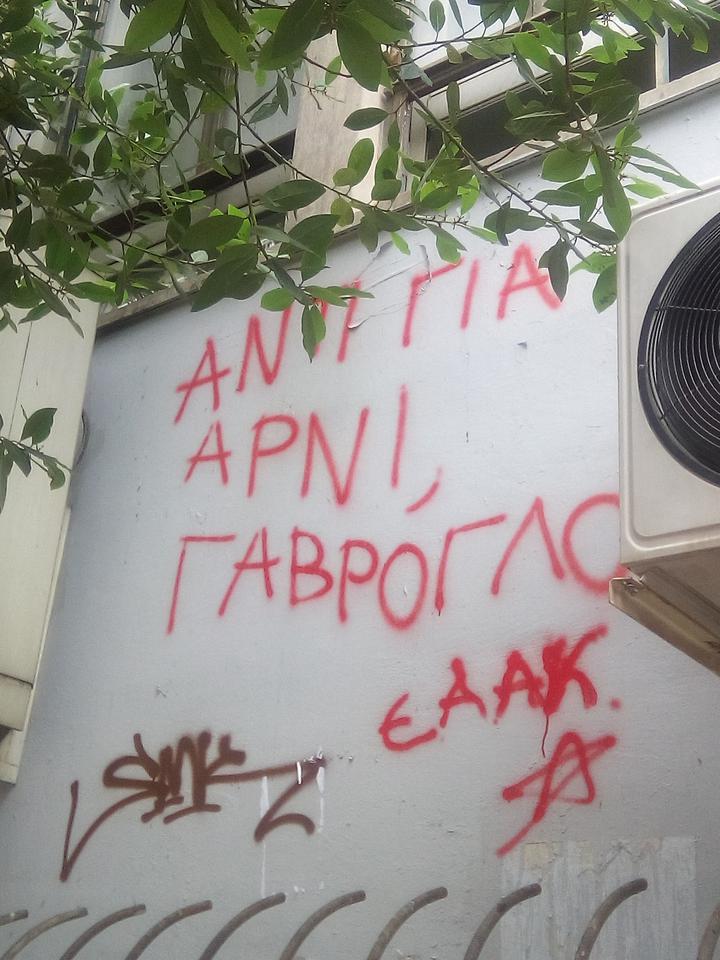 ΑΝΤΙ ΓΙΑ
ΑΡΝΙ,
ΓΑΒΡΟΓΛΟ
ΕΑΑΚ.
SMK